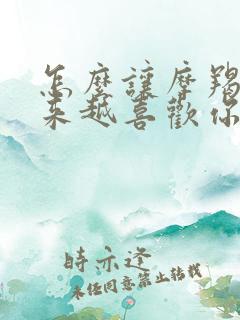 怎麼讓摩羯
來越喜歡你
時亦逐
未經同意禁止轉載